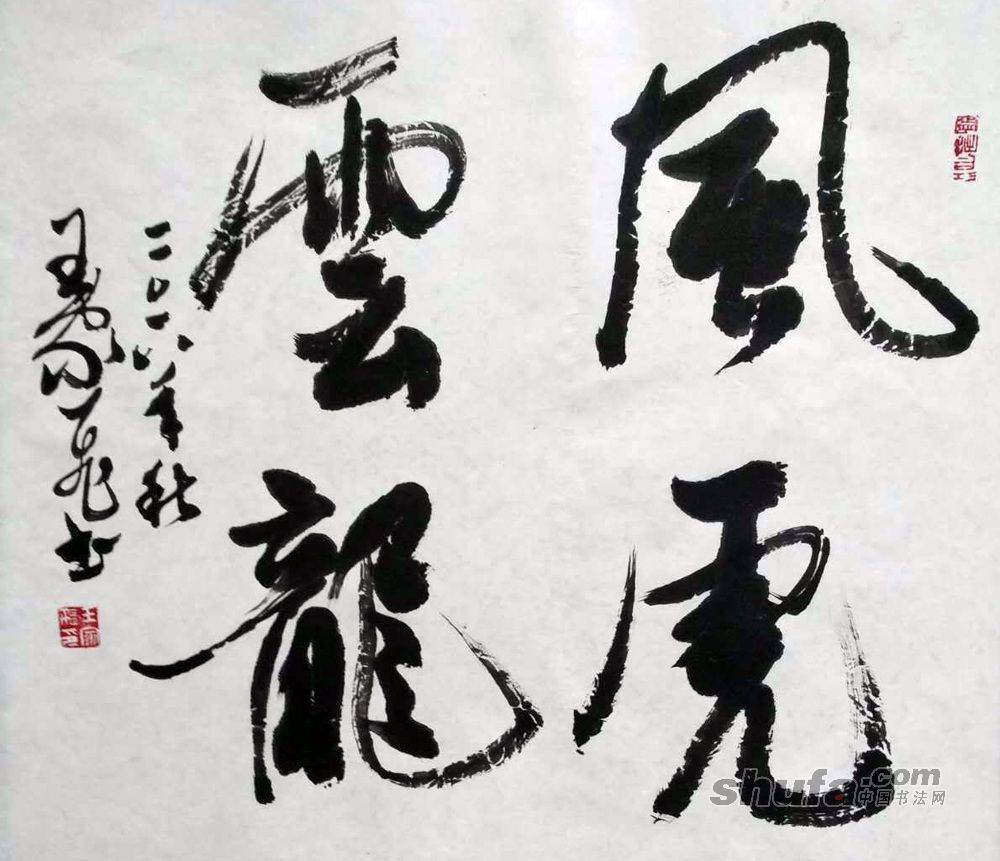 風虎
雲龍
二〇一八年秋
shufa.com
中国书法网